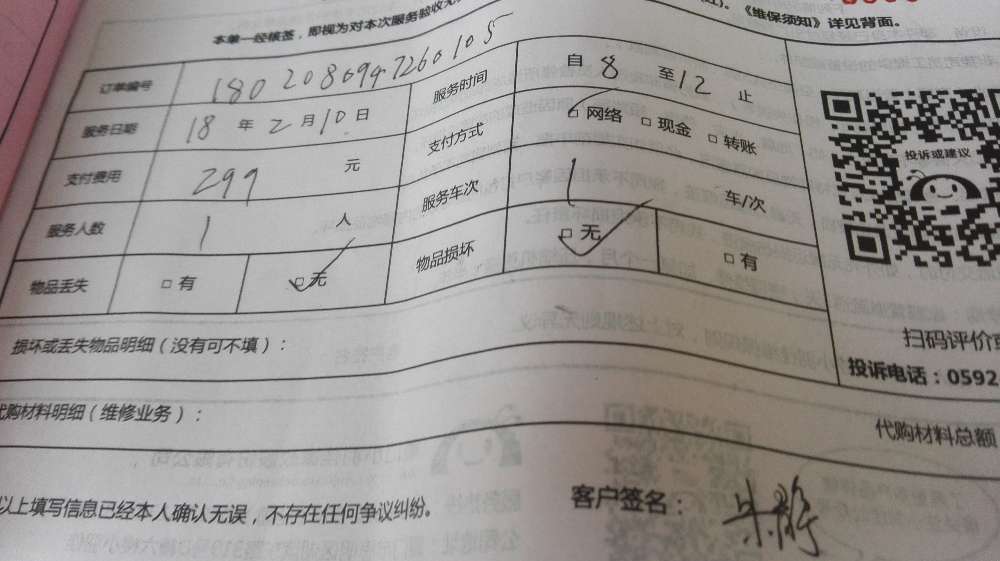 本单一经核签，即视为对本次服务验收无
《维保须知》详见背面。
订单编号 1802080947260105 服务时间 自 8 至 12 止
服务日期 18 年 2 月 10 日 支付方式 □ 网络 □ 现金 □ 转账
支付费用 299 元 服务车次 1 车/次
服务人数 1 人 物品损坏 □ 无 □ 有
物品丢失 □ 有 □ 无
投诉或建议
扫码评价或
投诉电话：0592
损坏或丢失物品明细（没有可不填）：
代购材料明细（维修业务）：
代购材料总额
以上填写信息已经本人确认无误，不存在任何争议纠纷。
客户签名： 朱静